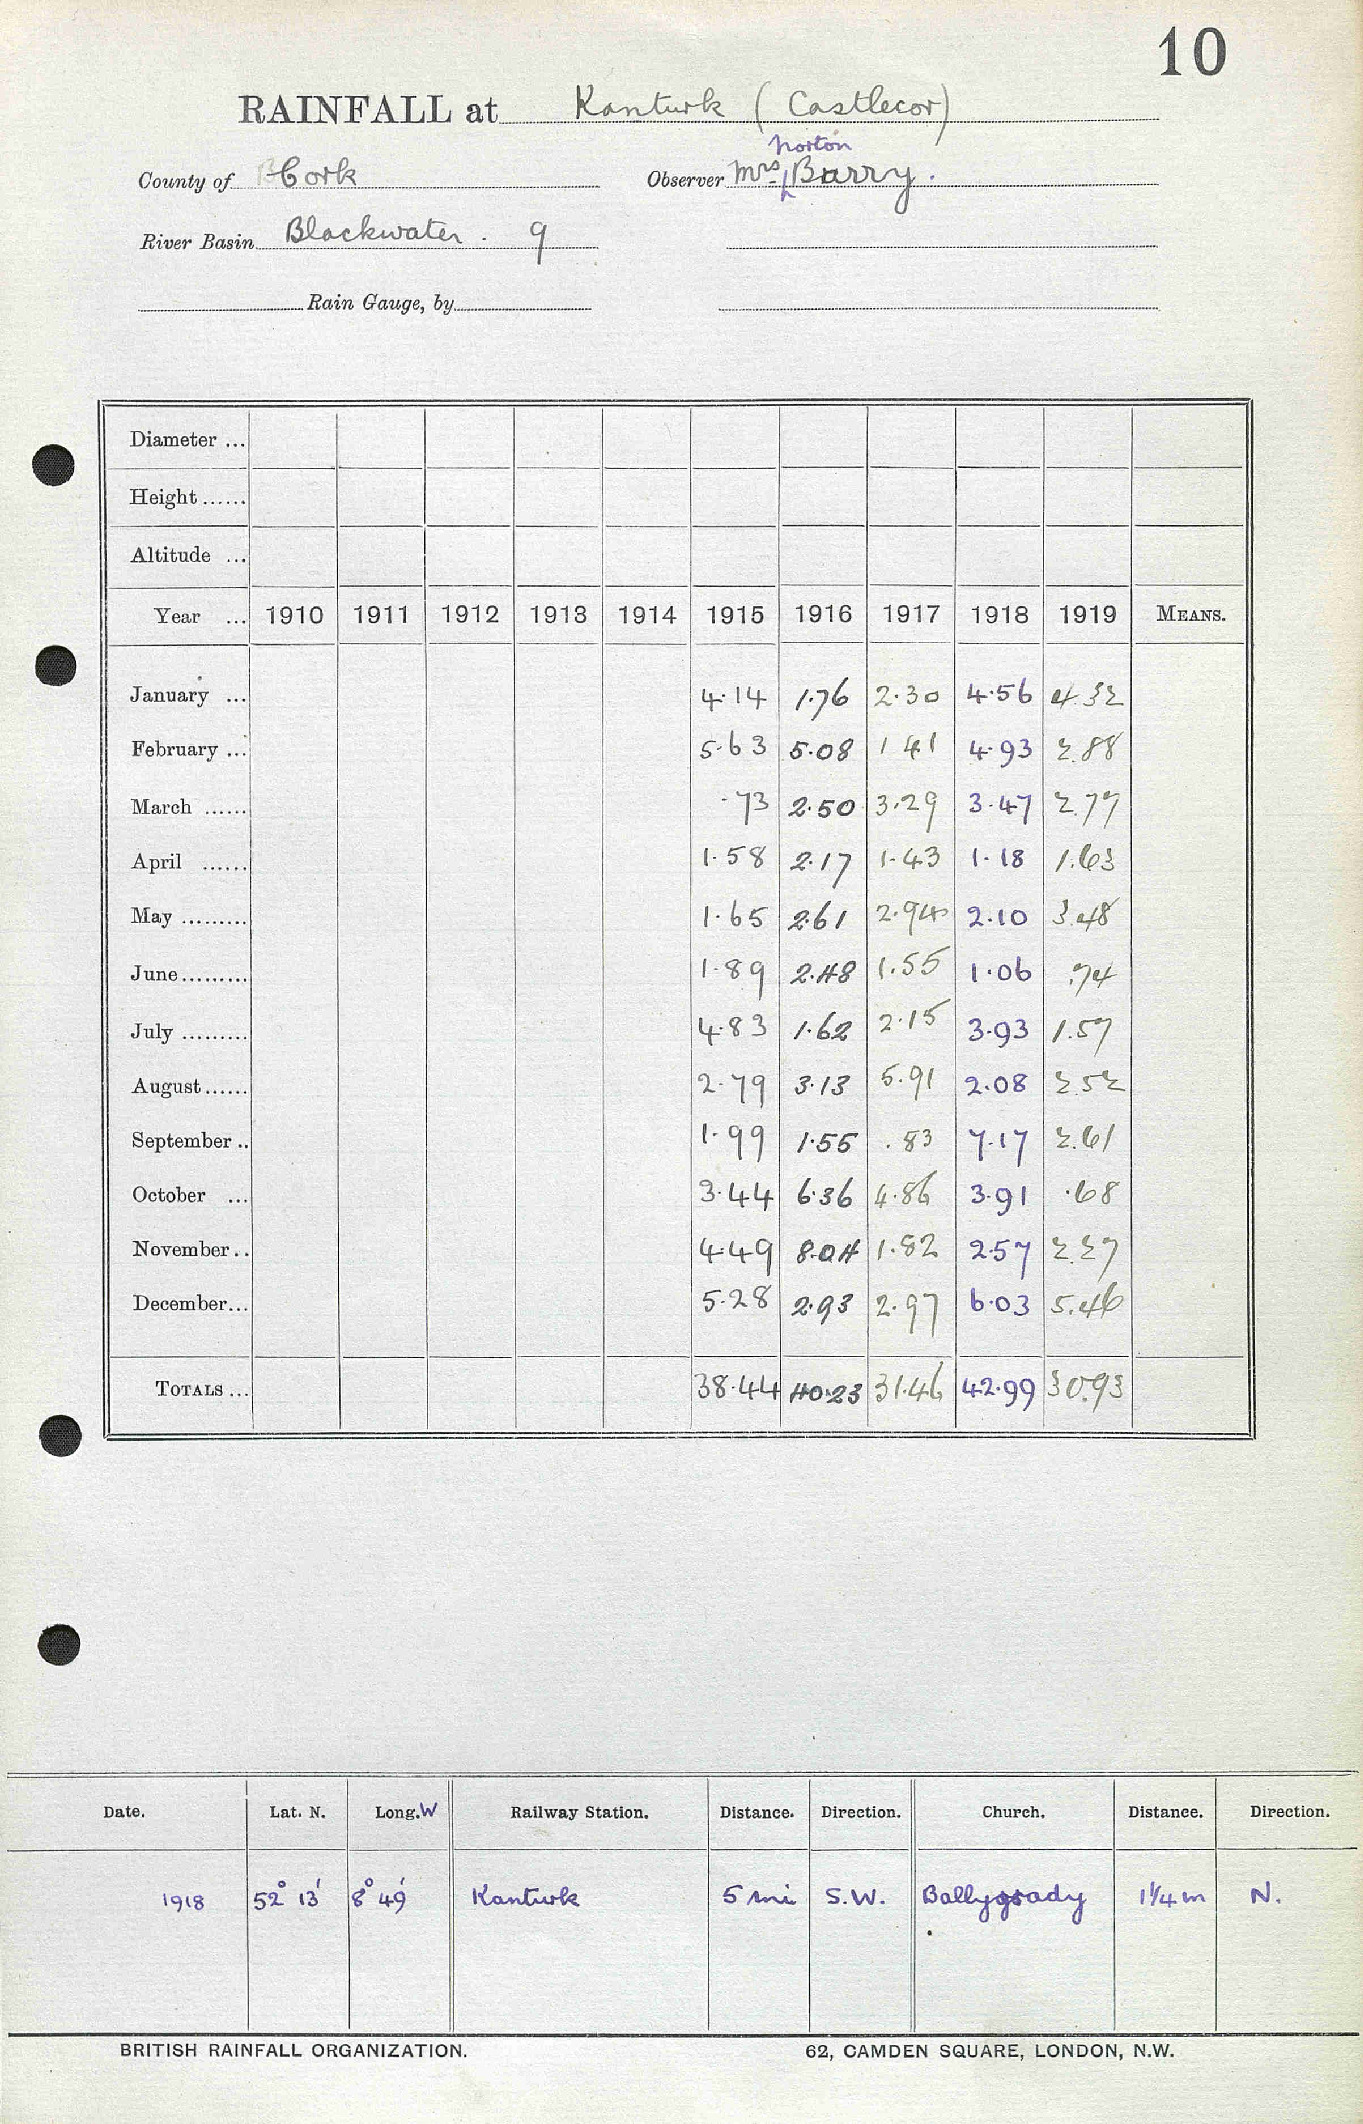 10
RAINFALL at Kanturk (Castlecor)
County of Cork Observer Mrs Norton Barry.
River Basin Blackwater . 9
Rain Gauge, by
Diameter ...
Height ......
Altitude ...
Year ... 1910 1911 1912 1913 1914 1915 1916 1917 1918 1919 MEANS.
January ... 4.14 1.76 2.30 4.56 4.32
February ... 5.63 5.08 1.41 4.93 2.88
March ...... .73 2.50 3.29 3.47 2.77
April ...... 1.58 2.17 1.43 1.18 1.63
May ......... 1.65 2.61 2.94 2.10 3.48
June......... 1.89 2.48 1.55 1.06 .74
July ......... 4.83 1.62 2.15 3.93 1.57
August...... 2.79 3.13 5.91 2.08 2.52
September .. 1.99 1.55 .83 7.17 2.61
October ... 3.44 6.36 4.86 3.91 .68
November .. 4.49 8.04 1.82 2.57 2.27
December... 5.28 2.93 2.97 6.03 5.46
TOTALS ... 38.44 40.23 31.46 42.99 30.93
Date. Lat. N. Long. W Railway Station. Distance. Direction. Church. Distance. Direction.
1918 52° 13' 8° 49' Kanturk 5 mi S.W. Ballygrady 1¼ m N.
BRITISH RAINFALL ORGANIZATION. 62, CAMDEN SQUARE, LONDON, N.W.